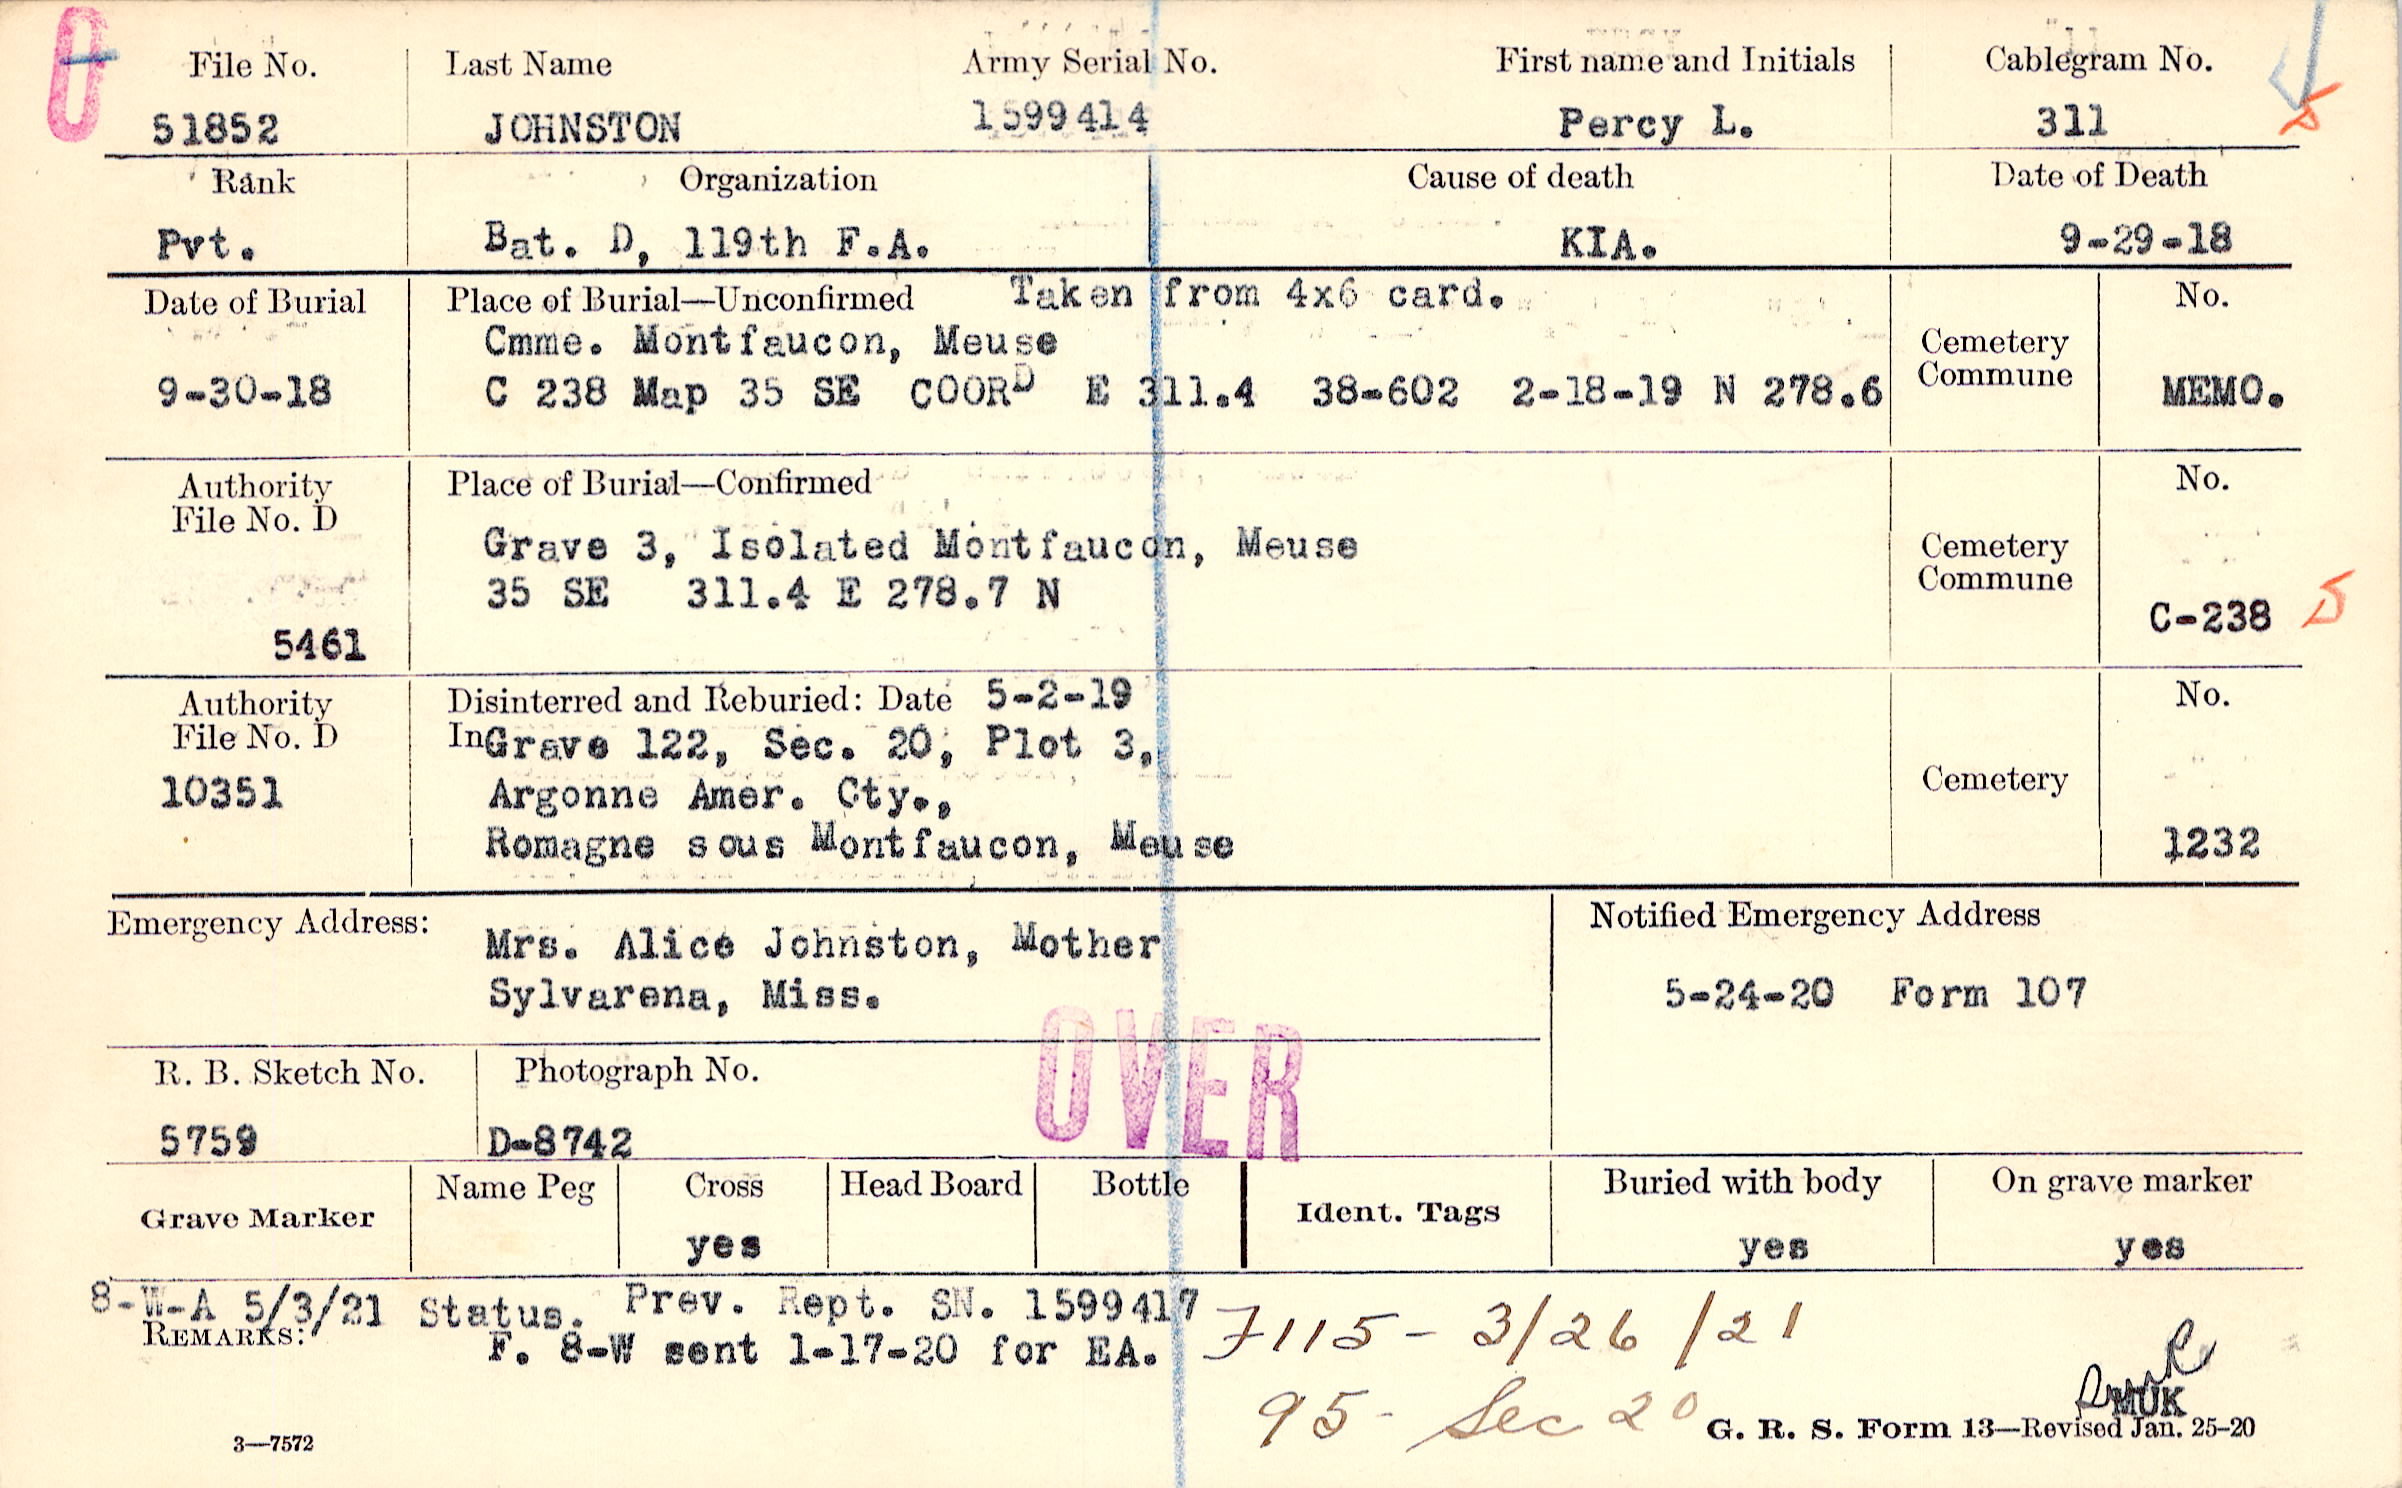 File No. Last Name Army Serial No. First name and Initials Cablegram No.
51852 JOHNSTON 1599414 Percy L. 311
Rank Organization Cause of death Date of Death
Pvt. Bat. D, 119th F.A. KIA. 9-29-18
Date of Burial Place of Burial—Unconfirmed Taken from 4x6 card. No.
Cmme. Montfaucon, Meuse Cemetery
9-30-18 C 238 Map 35 SE COORD E 311.4 38-602 2-18-19 N 278.6 Commune MEMO.
Authority Place of Burial—Confirmed No.
File No. D
Grave 3, Isolated Montfaucon, Meuse Cemetery
35 SE 311.4 E 278.7 N Commune
5461 C-238
Authority Disinterred and Reburied: Date 5-2-19 No.
File No. D In Grave 122, Sec. 20, Plot 3,
10351 Argonne Amer. Cty., Cemetery
Romagne sous Montfaucon, Meuse 1232
Emergency Address: Mrs. Alice Johnston, Mother Notified Emergency Address
Sylvarena, Miss. 5-24-20 Form 107
OVER
R. B. Sketch No. Photograph No.
5759 D-8742
Grave Marker Name Peg Cross Head Board Bottle Ident. Tags Buried with body On grave marker
yes yes yes
8-W-A 5/3/21 Status. Prev. Rept. SN. 1599417 7115- 3/26/21
REMARKS: F. 8-W sent 1-17-20 for EA.
95- Sec 20
MUK
3—7572 G. R. S. Form 13—Revised Jan. 25-20